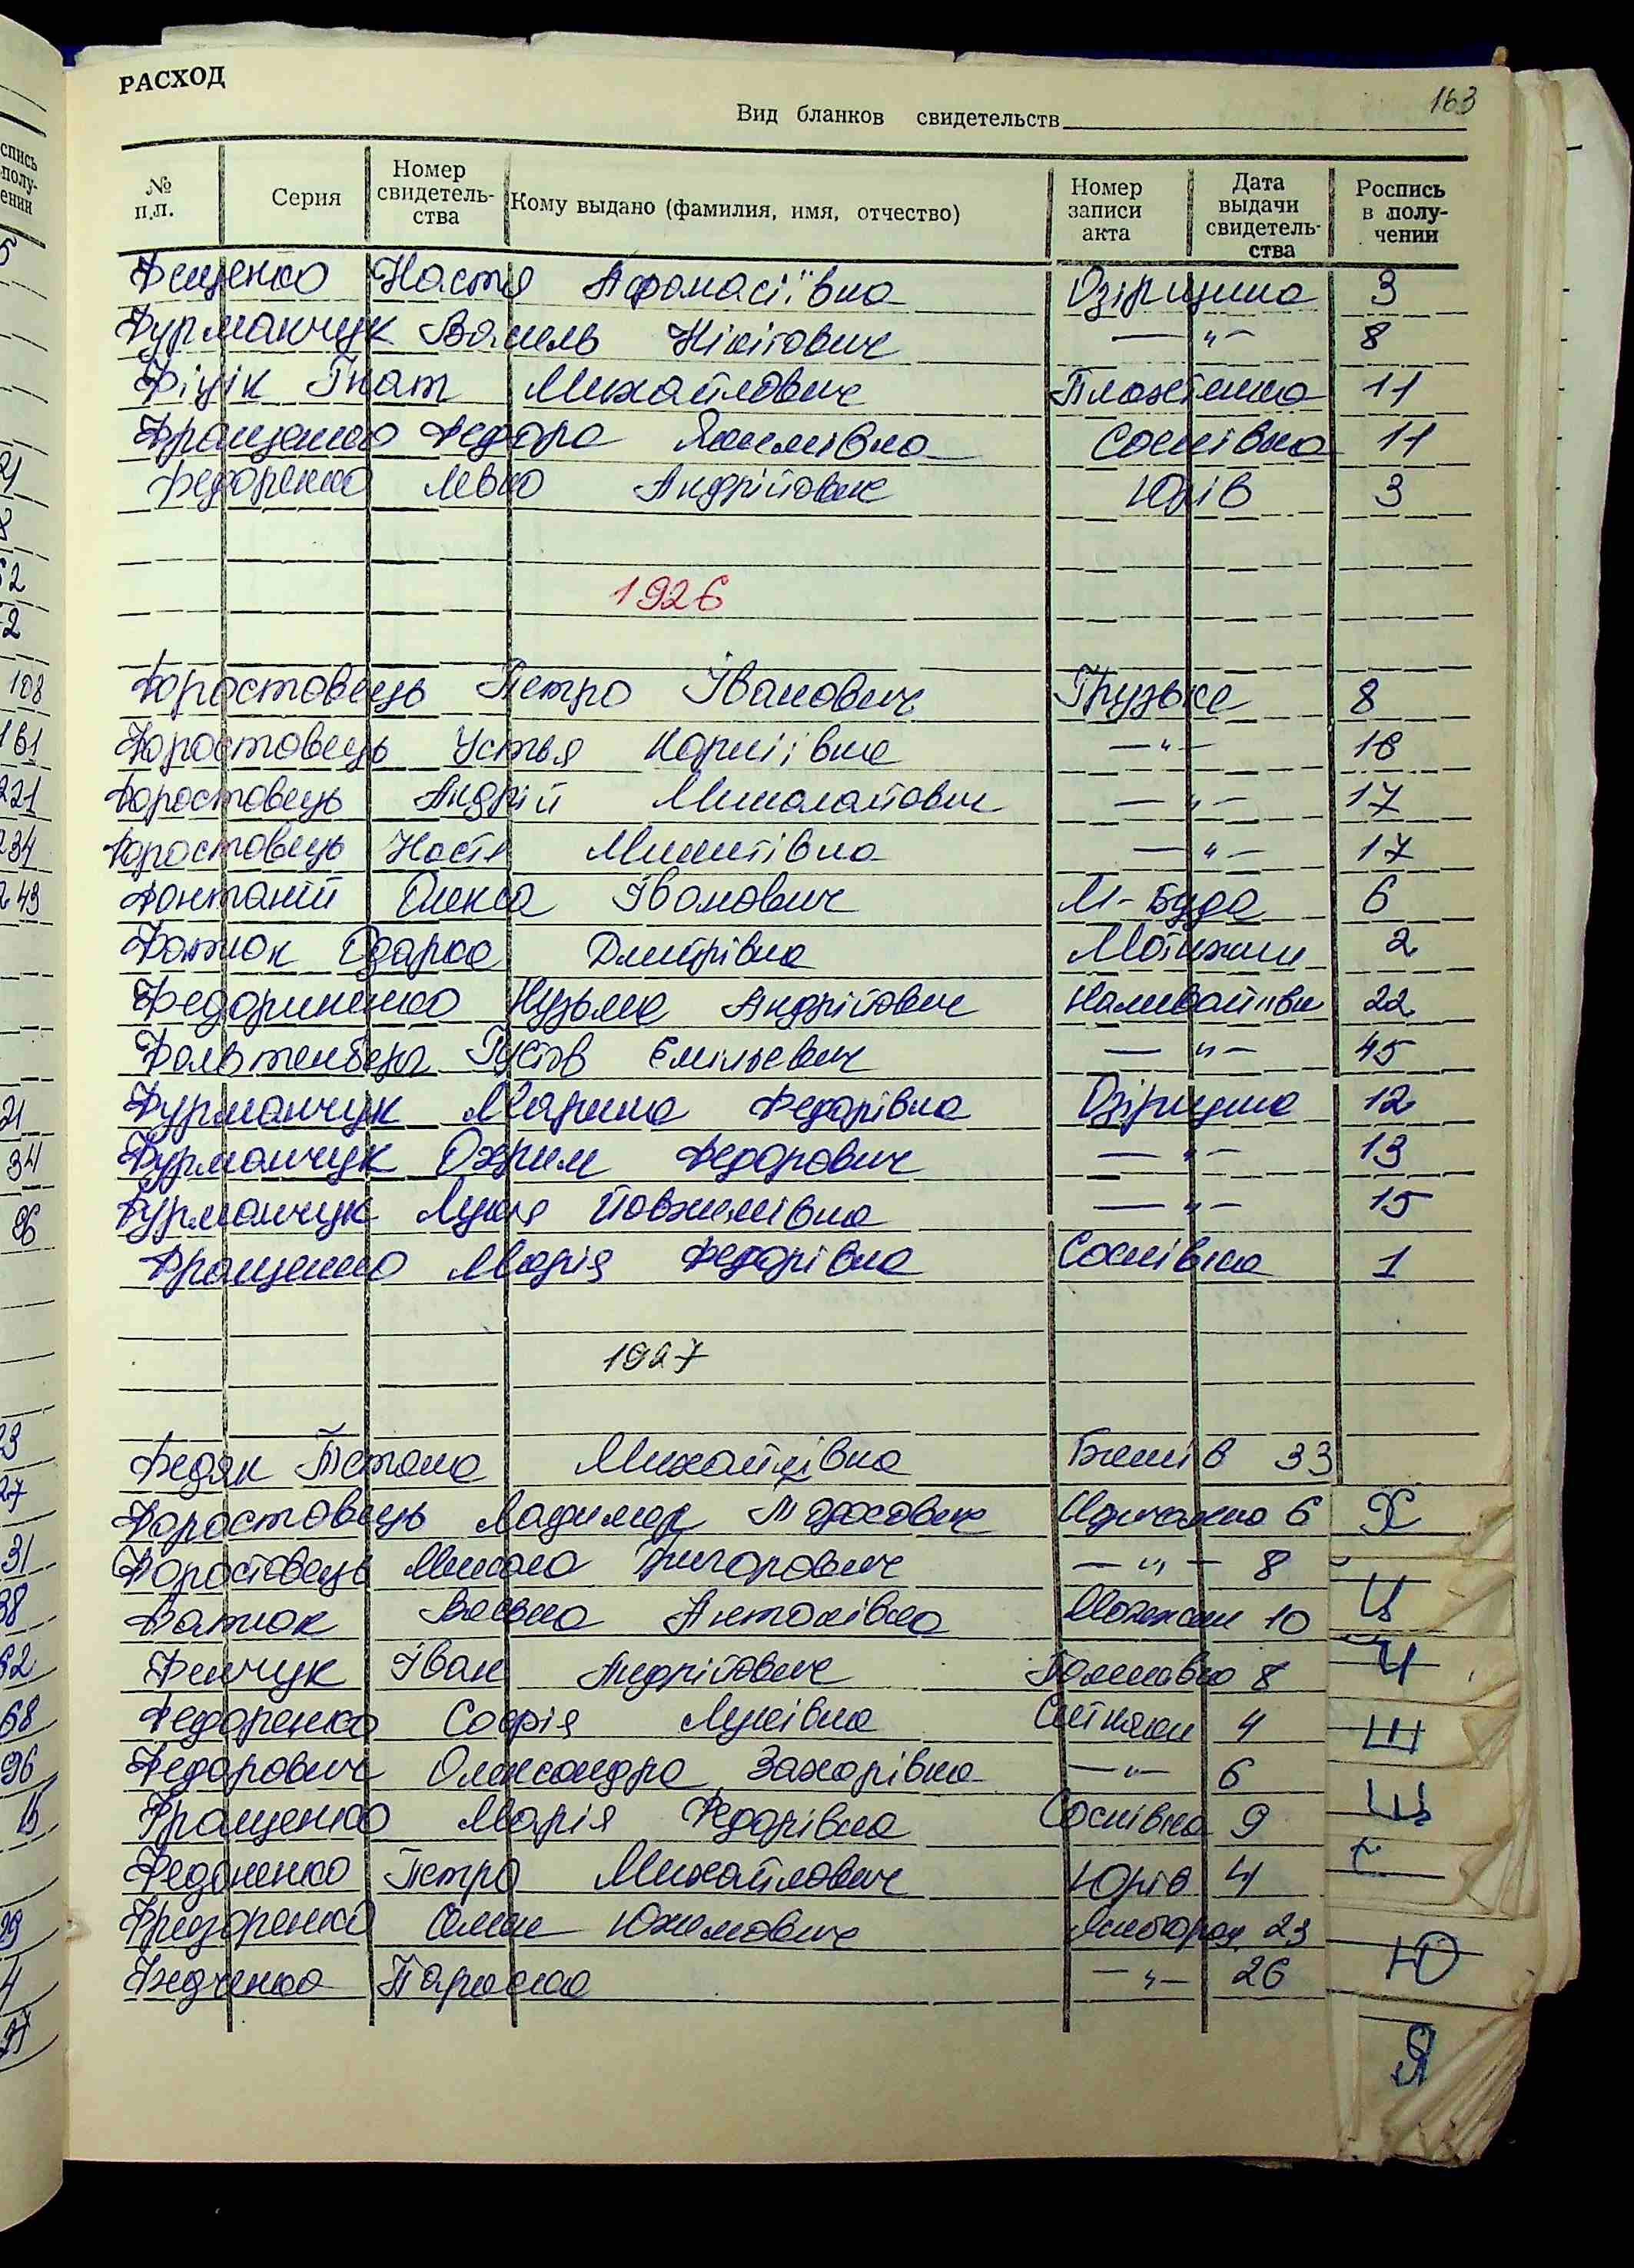 РАСХОД
163
Вид бланков свидетельств
№ п.п. Серия Номер свидетель-ства Кому выдано (фамилия, имя, отчество) Номер записи акта Дата выдачи свидетель-ства Роспись в полу-чении
Фещенко Настя Афонасіївна Озірщина 3
Фурманчук Василь Нікітович —"— 8
Фіцік Гнат Михайлович 11
Фращенко Федора Якимівна Соснівка 11
Федоренко Левко Андрійович Юрів 3
1926
Форостовець Петро Іванович Грузьке 8
Форостовець Устья Корніївна —"— 16
Форостовець Андрій Миколайович —"— 17
Форостовець Настя Микитівна —"— 17
Фонтаній Олекса Іванович М-Буда 6
Фотюк Одарка Дмитрівна Мотижин 2
Федориненко Кузьма Андрійович Наливайківк 22
Фольтенберг Густов Емільевич —"— 45
Фурманчук Марина Федорівна Озірщина 12
Фурманчук Охрим Федорович —"— 13
Фурманчук Лукія Йовхимівна —"— 15
Фращенко Марія Федорівна Соснівка 1
1927
Федяк Тетяна Михайлівна 33
Форостовець Ладимер 6 Х
Форостовець Микола Григорович —"— 8
Ц
Фатюк Антонівна Мотижин 10
Фенчук Іван Андрійович 8 Ч
Федоренко Софія Луківна Ситняки 4 Ш
Федорович Олександра Захарівна —"— 6
Фращенко Марія Федорівна Соснівка 9 Щ
Федоненко Петро Михайлович Юрів 4
Семен Юхимович Ясногород 23
Федченко Параска —"— 26 Ю
Я